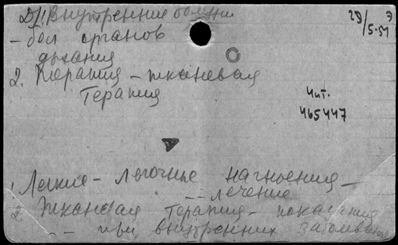 Д/1/ Внутренние болезни
29/5-51 Э
- бол органов
дыхания
2. Терапия - тканевая
Терапия
Чит.
465447
1. Легкие - легочные нагноения -
-- лечение
2. Тканевая терапия - показания
-- при внутренних заболеван